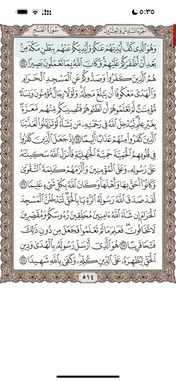 ٥:٣٥
سورة الفتح
الجزء السادس والعشرون
وَهُوَ الَّذِي كَفَّ أَيْدِيَهُمْ عَنكُمْ وَأَيْدِيَكُمْ عَنْهُم بِبَطْنِ مَكَّةَ مِنۢ
بَعْدِ أَنْ أَظْفَرَكُمْ عَلَيْهِمْ وَكَانَ اللَّهُ بِمَا تَعْمَلُونَ بَصِيرًا ٢٤
هُمُ الَّذِينَ كَفَرُوا وَصَدُّوكُمْ عَنِ الْمَسْجِدِ الْحَرَامِ
وَالْهَدْيَ مَعْكُوفًا أَن يَبْلُغَ مَحِلَّهُ وَلَوْلَا رِجَالٌ مُّؤْمِنُونَ وَنِسَاءٌ
مُّؤْمِنَاتٌ لَّمْ تَعْلَمُوهُمْ أَن تَطَئُوهُمْ فَتُصِيبَكُم مِّنْهُم مَّعَرَّةٌ
بِغَيْرِ عِلْمٍ لِّيُدْخِلَ اللَّهُ فِي رَحْمَتِهِ مَن يَشَاءُ لَوْ تَزَيَّلُوا لَعَذَّبْنَا
الَّذِينَ كَفَرُوا مِنْهُمْ عَذَابًا أَلِيمًا ٢٥ إِذْ جَعَلَ الَّذِينَ كَفَرُوا
فِي قُلُوبِهِمُ الْحَمِيَّةَ حَمِيَّةَ الْجَاهِلِيَّةِ فَأَنزَلَ اللَّهُ سَكِينَتَهُ
عَلَىٰ رَسُولِهِ وَعَلَى الْمُؤْمِنِينَ وَأَلْزَمَهُمْ كَلِمَةَ التَّقْوَىٰ
وَكَانُوا أَحَقَّ بِهَا وَأَهْلَهَا وَكَانَ اللَّهُ بِكُلِّ شَيْءٍ عَلِيمًا ٢٦
لَّقَدْ صَدَقَ اللَّهُ رَسُولَهُ الرُّءْيَا بِالْحَقِّ لَتَدْخُلُنَّ الْمَسْجِدَ
الْحَرَامَ إِن شَاءَ اللَّهُ ءَامِنِينَ مُحَلِّقِينَ رُءُوسَكُمْ وَمُقَصِّرِينَ
لَا تَخَافُونَ فَعَلِمَ مَا لَمْ تَعْلَمُوا فَجَعَلَ مِن دُونِ ذَٰلِكَ
فَتْحًا قَرِيبًا ٢٧ هُوَ الَّذِي أَرْسَلَ رَسُولَهُ بِالْهُدَىٰ وَدِينِ
الْحَقِّ لِيُظْهِرَهُ عَلَى الدِّينِ كُلِّهِ وَكَفَىٰ بِاللَّهِ شَهِيدًا ٢٨
٥١٤